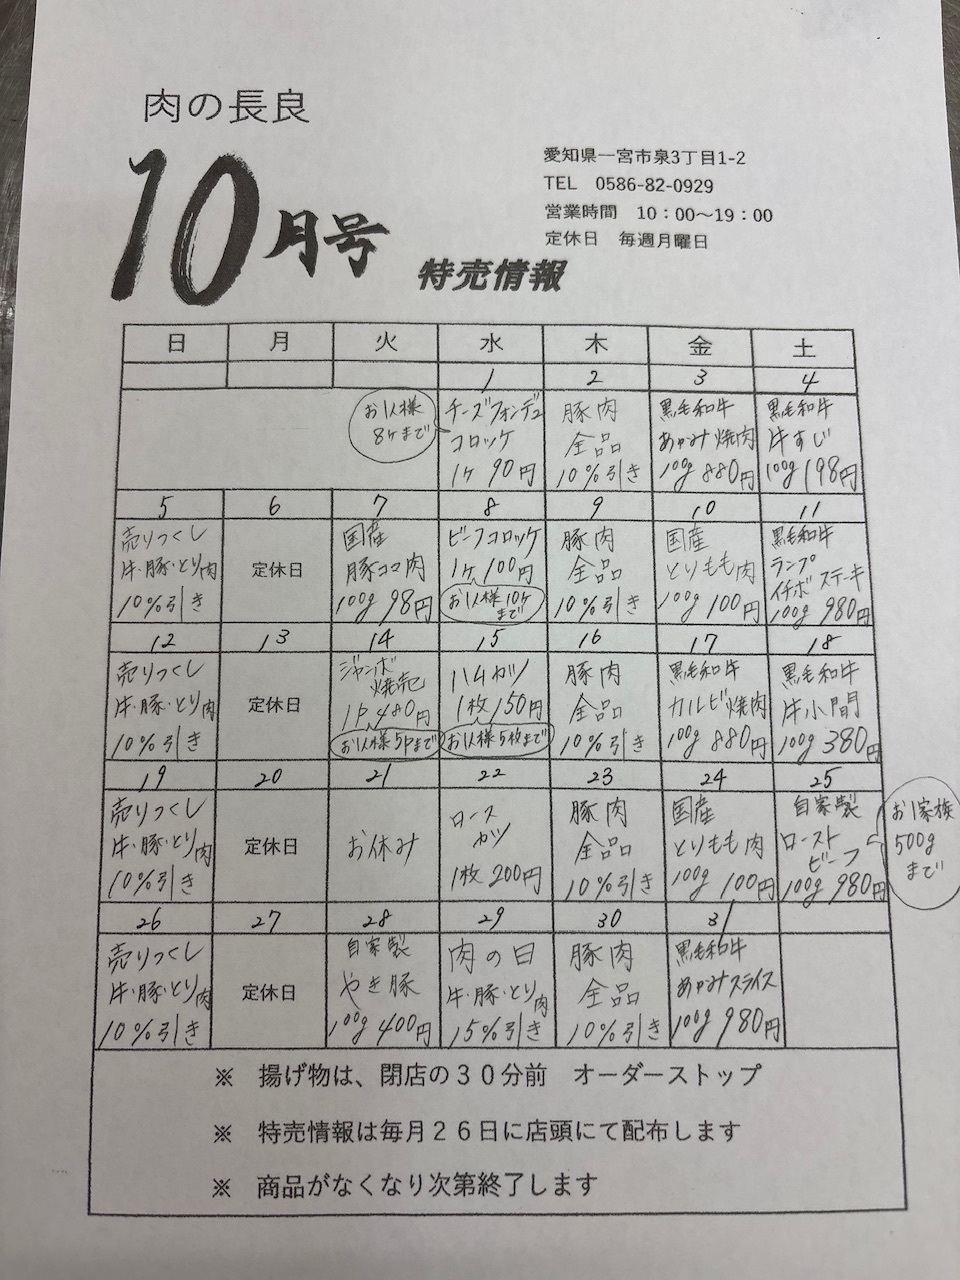 肉の長良
10月号
特売情報
愛知県一宮市泉3丁目1-2
TEL 0586-82-0929
営業時間 10：00～19：00
定休日 毎週月曜日
日 月 火 水 木 金 土
1 2 3 4
お1人様
8ケまで
チーズフォンデュ
コロッケ
1ケ 90円
豚肉
全品
10%引き
黒毛和牛
あかみ焼肉
100g 880円
黒毛和牛
牛すじ
100g 198円
5 6 7 8 9 10 11
売りつくし
牛・豚・とり肉
10%引き
定休日
国産
豚ココマ肉
100g 98円
ビーフコロッケ
1ケ 100円
お1人様10ケ
まで
豚肉
全品
10%引き
国産
とりもも肉
100g 100円
黒毛和牛
ランプ
イチボ ステーキ
100g 980円
12 13 14 15 16 17 18
売りつくし
牛・豚・とり肉
10%引き
定休日
ジャンボ
焼売
1P 480円
お1人様5Pまで
ハムカツ
1枚 150円
お1人様5枚まで
豚肉
全品
10%引き
黒毛和牛
カルビ焼肉
100g 880円
黒毛和牛
牛小間
100g 380円
19 20 21 22 23 24 25
売りつくし
牛・豚・とり肉
10%引き
定休日
お休み
ロース
カツ
1枚 200円
豚肉
全品
10%引き
国産
とりもも肉
100g 100円
自家製
ロースト
ビーフ
100g 980円
お1家族
500g
まで
26 27 28 29 30 31
売りつくし
牛・豚・とり肉
10%引き
定休日
自家製
やき豚
100g 400円
肉の日
牛・豚・とり肉
15%引き
豚肉
全品
10%引き
黒毛和牛
あかみスライス
100g 980円
※ 揚げ物は、閉店の３０分前 オーダーストップ
※ 特売情報は毎月２６日に店頭にて配布します
※ 商品がなくなり次第終了します